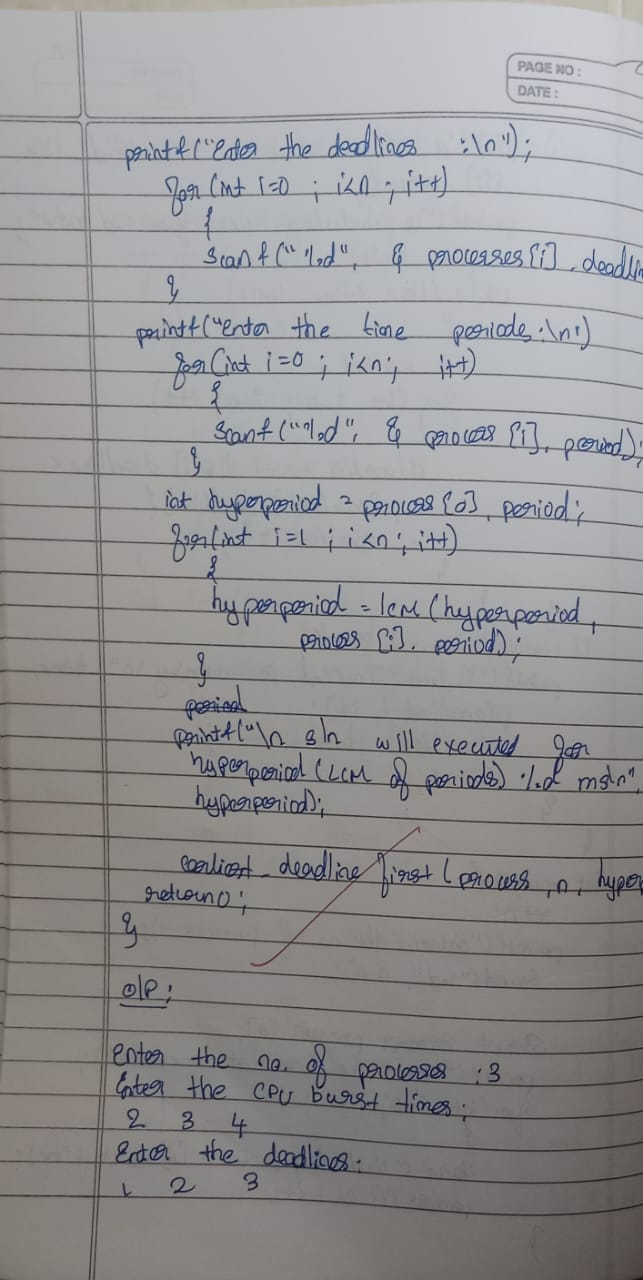 PAGE NO :
DATE :
printf("Enter the deadlines :\n");
for (int i=0 ; i<n ; i++)
{
scanf("%d", & processes[i] . deadlin
}
printf("enter the time periods :\n")
for (int i=0 ; i<n ; i++)
{
scanf("%d", & process [i] . period);
}
int hyperperiod = process [0] . period;
for (int i=1 ; i<n ; i++)
{
hyperperiod = lcM (hyperperiod,
process [i]. period);
}
printf("\n sln will executed for
hyperperiod (LCM of periods) %d ms\n",
hyperperiod);
earliest_deadline first ( process , n , hyper
return 0;
}
O/P :
Enter the no. of processes : 3
Enter the CPU burst times :
2 3 4
Enter the deadlines :
1 2 3